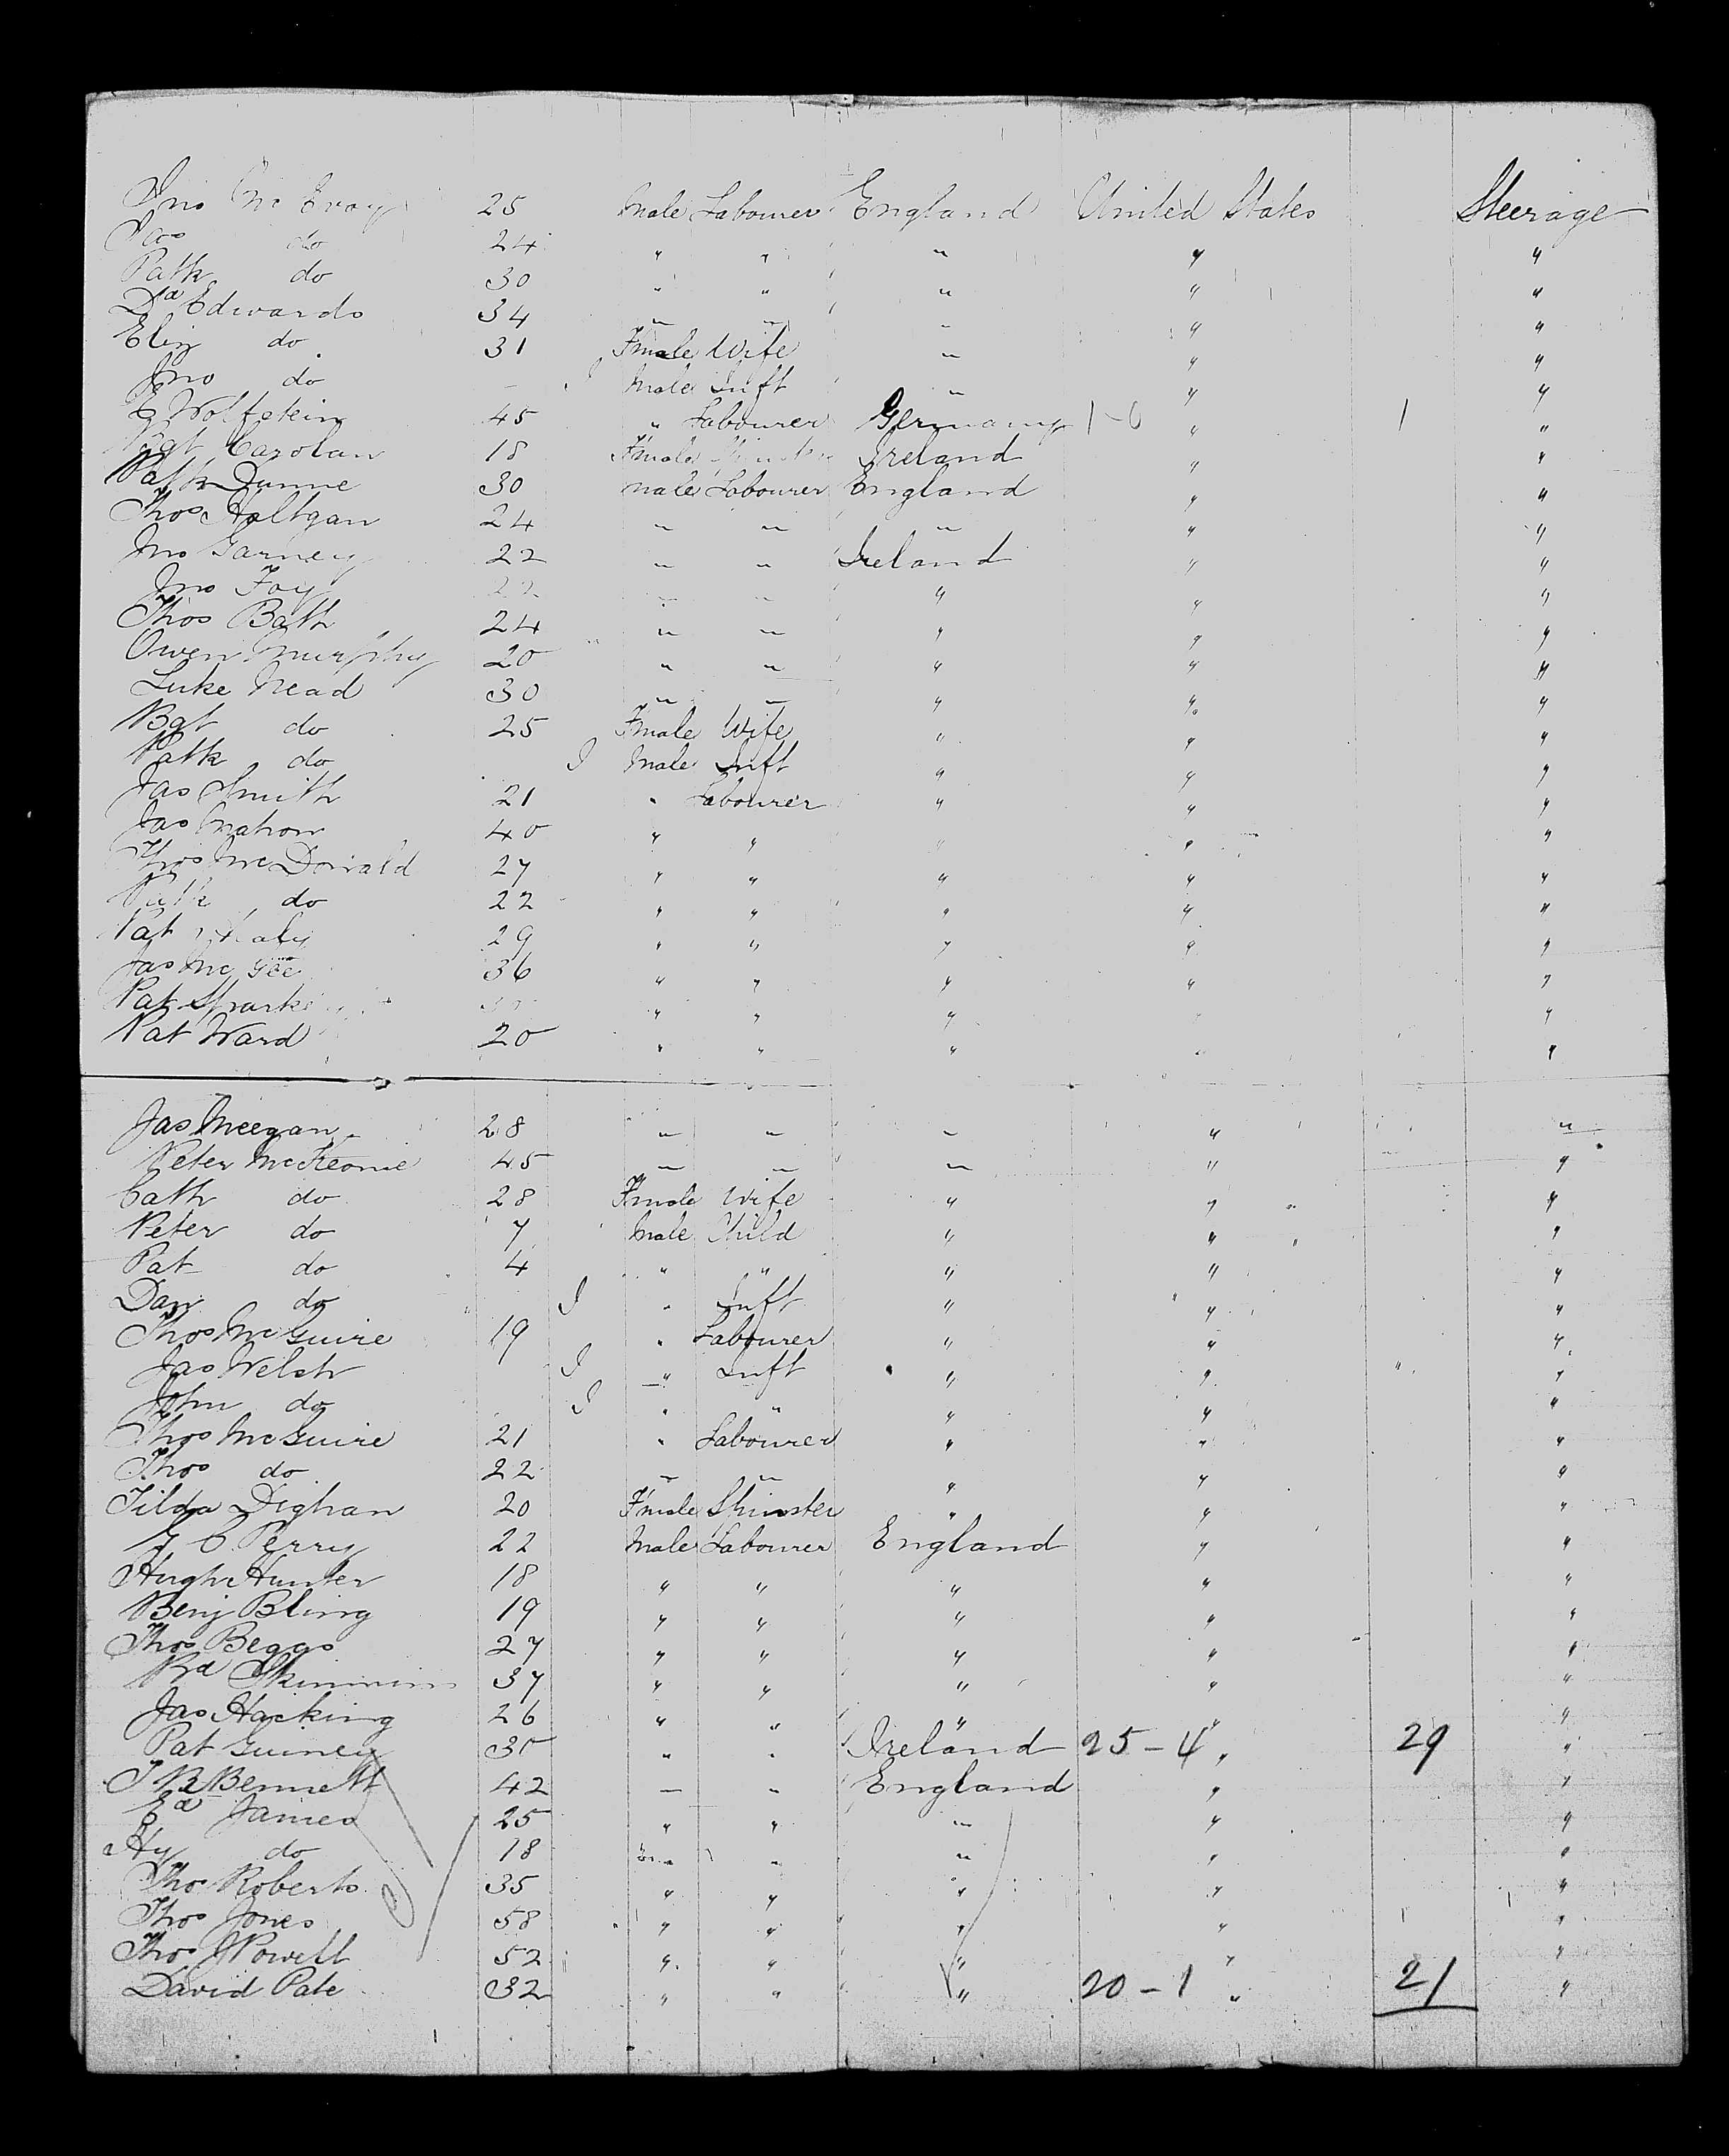 Jno McEvoy 25 Male Labourer England United States Steerage
Jas do 24 " " " " "
Patk do 30 " " " " "
Dd Edwards 34 " " " " "
Eliz do 31 Fmale Wife " " "
Jno do - I Male Inft " " "
E Wolfstein 45 " Labourer Germany 1-0 " 1 "
Bgt Carolan 18 Fmale Ireland " "
Patk Dunne 30 male Labourer England " "
Thos Haltgan 24 " " " " "
Jno Garney 22 " " Ireland " "
Jno Foy 22 " " " " "
Thos Bath 24 " " " " "
Owen Murphy 20 " " " " "
Luke Mead 30 " " " " "
Bgt do 25 Fmale Wife " " "
Patk do I Male Inft " " "
Jas Smith 21 " Labourer " " "
Jas Mahon 40 " " " " "
Thos McDonald 27 " " " " "
Patk do 22 " " " " "
Pat 29 " " " " "
Jas McGee 36 " " " " "
Pat " " " "
Pat Ward 20 " " " " "
Jas Meegan 28 " " " " "
Peter McKeonie 45 " " " " "
Cath do 28 Fmale Wife " " "
Peter do 7 Male Child " " "
Pat do 4 " " " " "
Dan do I " Inft " " "
Thos McGuire 19 " Labourer " " "
Jas Welsh I " Inft " " "
John do I " " " " "
Thos McGuire 21 " Labourer " " "
Thos do 22 " " " " "
Tilda Dighan 20 Fmale Spinster " " "
J C. Perry 22 Male Labourer England " "
Hugh Hunter 18 " " " " "
Benj Bling 19 " " " " "
Thos Beggs 27 " " " " "
Rd Skimmin 37 " " " " "
Jas Hacking 26 " " " " "
Pat Guiney 30 " " Ireland 25-4 " 29 "
J B Bennett 42 " " England " "
Ed James 25 " " " " "
Hy do 18 " " " " "
Tho Roberts 35 " " " " "
Thos Jones 58 " " " " "
Thos J Powell 52 " " " " "
David Pate 32 " " " 20-1 " 21 "